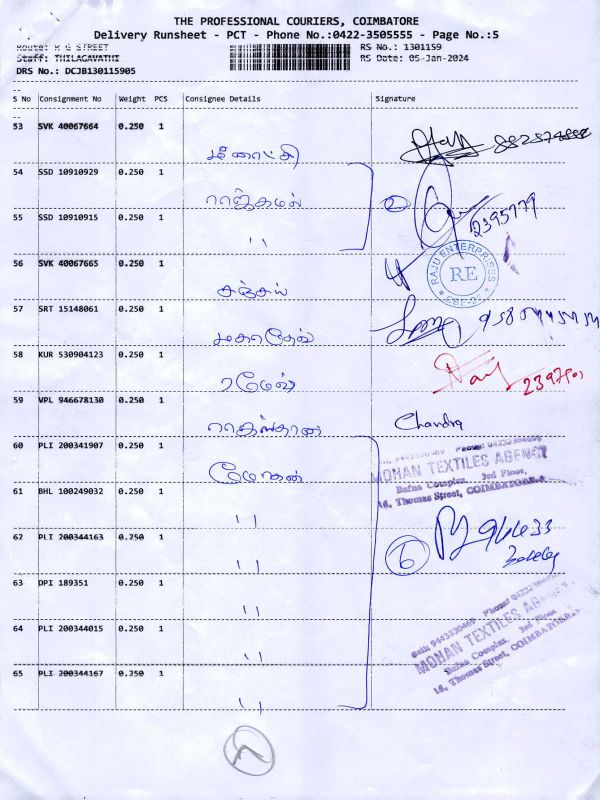 THE PROFESSIONAL COURIERS, COIMBATORE
Delivery Runsheet - PCT - Phone No.:0422-3505555 - Page No.:5
Route: M G STREET
Staff: THILAGAVATHI
DRS No.: DCJB130115905
RS No.: 1301159
RS Date: 05-Jan-2024
S No Consignment No Weight PCS Consignee Details Signature
53 SVK 40067664 0.250 1
மீனாட்சி
54 SSD 10910929 0.250 1
ராஜ்கமல்
2
55 SSD 10910915 0.250 1
"
2395779
56 SVK 40067665 0.250 1
சஞ்சய்
RAJU ENTERPRISES
RE
57 SRT 15148061 0.250 1
மகாதேவ்
58 KUR 530904123 0.250 1
ரமேஷ்
59 VPL 946678130 0.250 1
ராஜஸ்தான்
Chandra
60 PLI 200341907 0.250 1
மோகன்
MOHAN TEXTILES AGENCY
Bafna Complex, 3rd Floor,
16, Thomas Street, COIMBATORE
61 BHL 100249032 0.250 1
"
6
62 PLI 200344163 0.250 1
"
63 DPI 189351 0.250 1
"
64 PLI 200344015 0.250 1
"
MOHAN TEXTILES AGENCY
Bafna Complex, 3rd Floor
16, Thomas Street, COIMBATORE
65 PLI 200344167 0.250 1
"